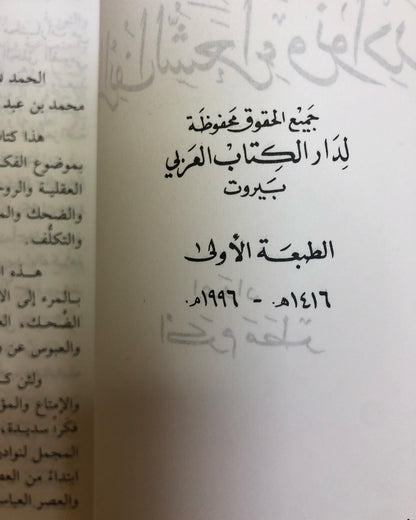 جميع الحقوق محفوظة
لدار الكتاب العربي
بيروت
الطبعة الأولى
١٤١٦هـ - ١٩٩٦م
الحمد
محمد بن عبد
هذا كتا
بموضوع الفك
العقلية والروح
والضحك والم
والتكلُّف.
هـذه ا
بالمرء إلى الا
الضحك، الم
والعبوس عن و
ولئن كـ
والإمتاع والمؤ
فكراً سديدة،
المجمل لنوادر
ابتداءً من العص
والعصر العباس